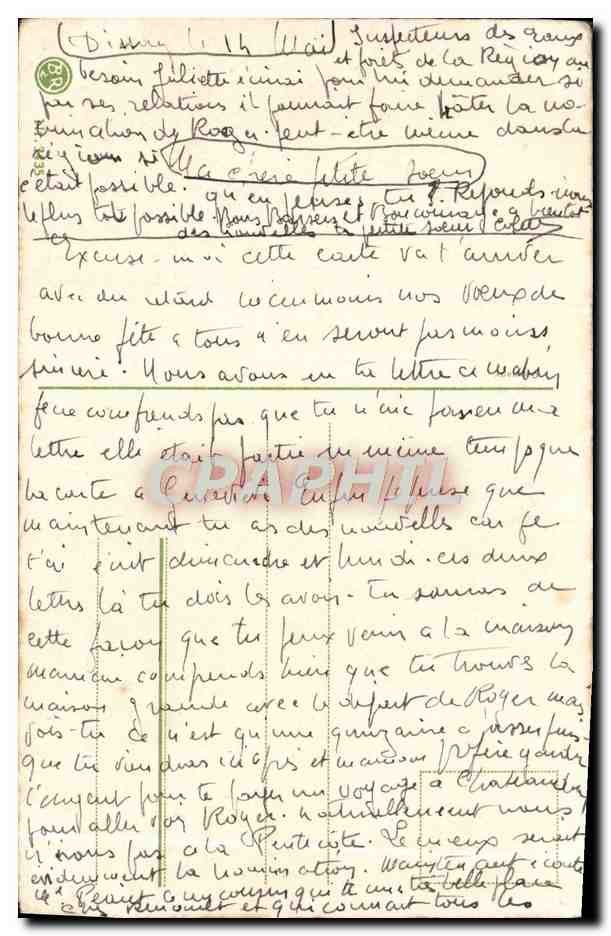 14 Mai Inspecteurs des eaux
et forêts de la Région au
besoin Juliette écrirai pour lui demander si
par ses relations il pourrait faire hâter la no-
mination de Roger. peut-être même dans la
région si Ma chère petite soeur
c'était possible. qu'en penses tu ? Réponds-nous
le plus tôt possible Bons Baisers et Bon courage à bientôt
des nouvelles ta petite soeur
BR
Excuse-moi cette carte va t'arriver
avec du retard néanmoins nos voeux de
bonne fête a tous n'en seront pas moins
sincère. Nous avons eu ta lettre ce matin
je ne comprends pas que tu n'aie pas eu ma
lettre elle était partie en même temps que
la carte a Geneviève Enfin je pense que
maintenant tu as des nouvelles car je
t'ai écrit dimanche et lundi. ces deux
lettres là tu dois les avoir. tu sauras de
cette façon que tu peux venir a la maison
maman comprends bien que tu trouves la
maison grande avec le départ de Roger mais
vois-tu ce n'est qu'une quinzaine a passer puis-
que tu viendras ici après et maman préfère garder
l'argent pour te payer un voyage a
pour aller voir Roger. naturellement nous
n'irons pas a la Pentecôte. Le mieux serait
évidemment la nomination. Maintenant écoute
a un cousin qui a une très belle place
et qui connait tous les
CPAPHIL